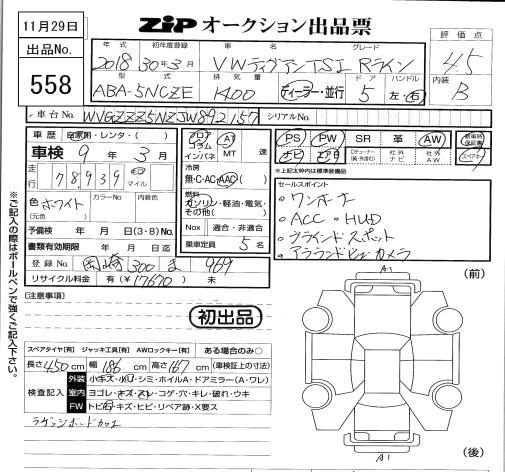 11月29日
ZIP オークション出品票
出品No.
558
年式 初年度登録 車名 グレード
2018 30年3月 VWティグアン TSI Rライン
型式 排気量 ドア ハンドル
ABA-5NCZE 1400 ディーラー・並行 5 左・右
評価点
4.5
内装
B
車台No. WVGZZZ5NZJW892157 シリアルNo.
車歴 自家用・レンタ・( )
車検 9年3月
走行 78,939 km マイル
色 ホワイト カラーNo. 内装色
(元色)
予備検 年 月 日(3・8)No.
書類有効期限 年 月 日迄
登録No. 岡崎 300 ま 969
リサイクル料金 有(¥17670) 未
フロア コラム インパネ
AT MT 速
冷房
無・C・AC・AAC( )
燃料
ガソリン・軽油・電気・その他( )
Nox 適合・非適合
乗車定員 5名
PS PW SR 革 AW 新車時保証書
ナビ エアB Dチューナー(純・外含む) 社外ナビ 社外AW スペアキー
※上記太枠内は標準装備品
セールスポイント
・ワンオーナー
・ACC・HUD
・ブラインドスポット
・アラウンドビューカメラ
※ご記入の際はボールペンで強くご記入下さい。
[注意事項]
初出品
スペアタイヤ[有] ジャッキ工具[有] AWロックキー[有] ある場合のみ○
長さ450cm 幅186cm 高さ167cm (車検証上の寸法)
検査記入
外装 小キズ・小凹・シミ・ホイルA・ドアミラー(A・ワレ)
室内 ヨゴレ・キズ・スレ・コゲ・穴・キレ・破れ・ウキ
FW トビ石・キズ・ヒビ・リペア跡・X要ス
ラゲッジボードカッエ
A1
(前)
A1
(後)